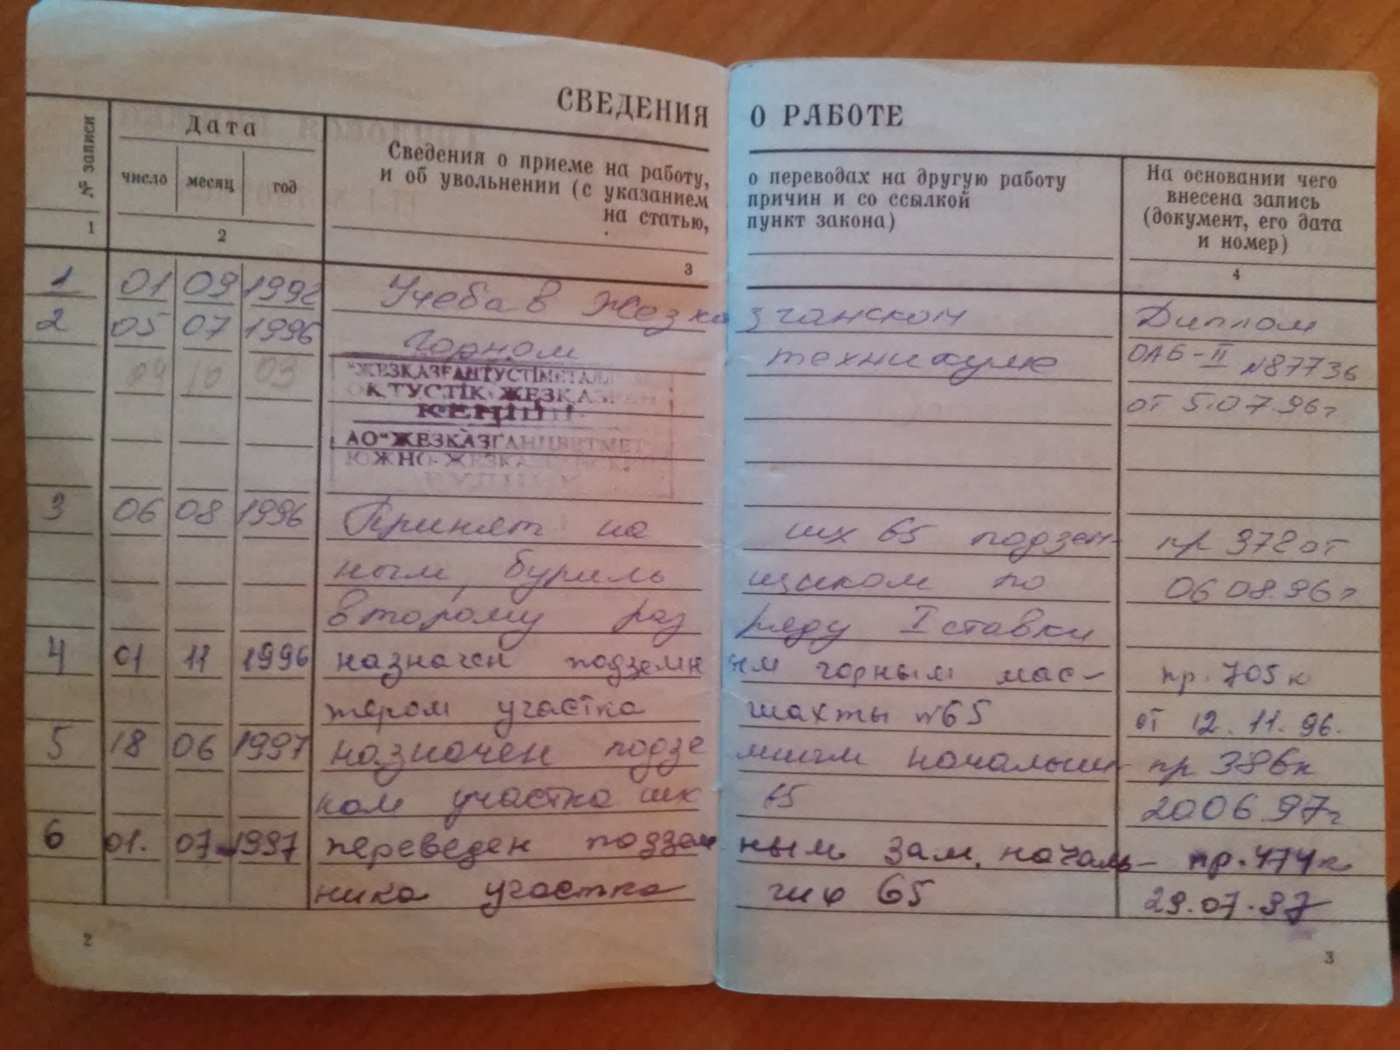 СВЕДЕНИЯ О РАБОТЕ
№ записи
Дата
число месяц год
Сведения о приеме на работу, о переводах на другую работу
и об увольнении (с указанием причин и со ссылкой
на статью, пункт закона)
На основании чего
внесена запись
(документ, его дата
и номер)
1 2 3 4
1 01 09 1992 Учеба в Жезказганском Диплом
2 05 07 1996 горном техникуме ОАБ-II №87736
09 10 03
от 5.07.96г
"ЖЕЗКАЗҒАНТҮСТІМЕТАЛЛ"
ОҢТҮСТІК-ЖЕЗКАЗҒАН
КЕНІШІ
АО "ЖЕЗКАЗГАНЦВЕТМЕТ"
ЮЖНО-ЖЕЗКАЗГАНСКИЙ
РУДНИК
3 06 08 1996 Принят на шх 65 подзем- пр 372 от
ным бурильщиком по 06.08.96г
второму разряду I ставки
4 01 11 1996 назначен подземным горным мас- пр. 705к
тером участка шахты №65 от 12.11.96.
5 18 06 1997 назначен подземным начальни- пр 386к
ком участка шх 65 20.06.97г
6 01. 07 1997 переведен подземным зам. началь- пр. 474к
ника участка 65 29.07.97
2
3